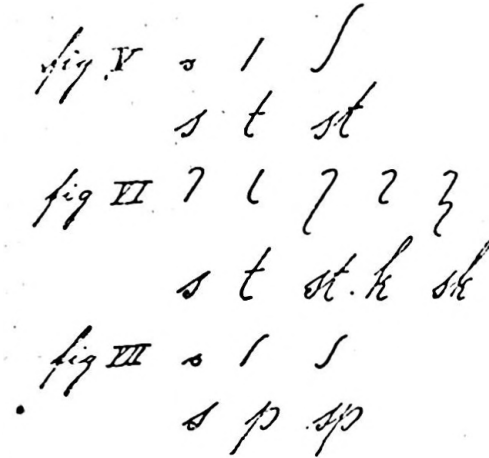 fig V
s t st
fig VI
s t st. k sk
fig VII
s p sp